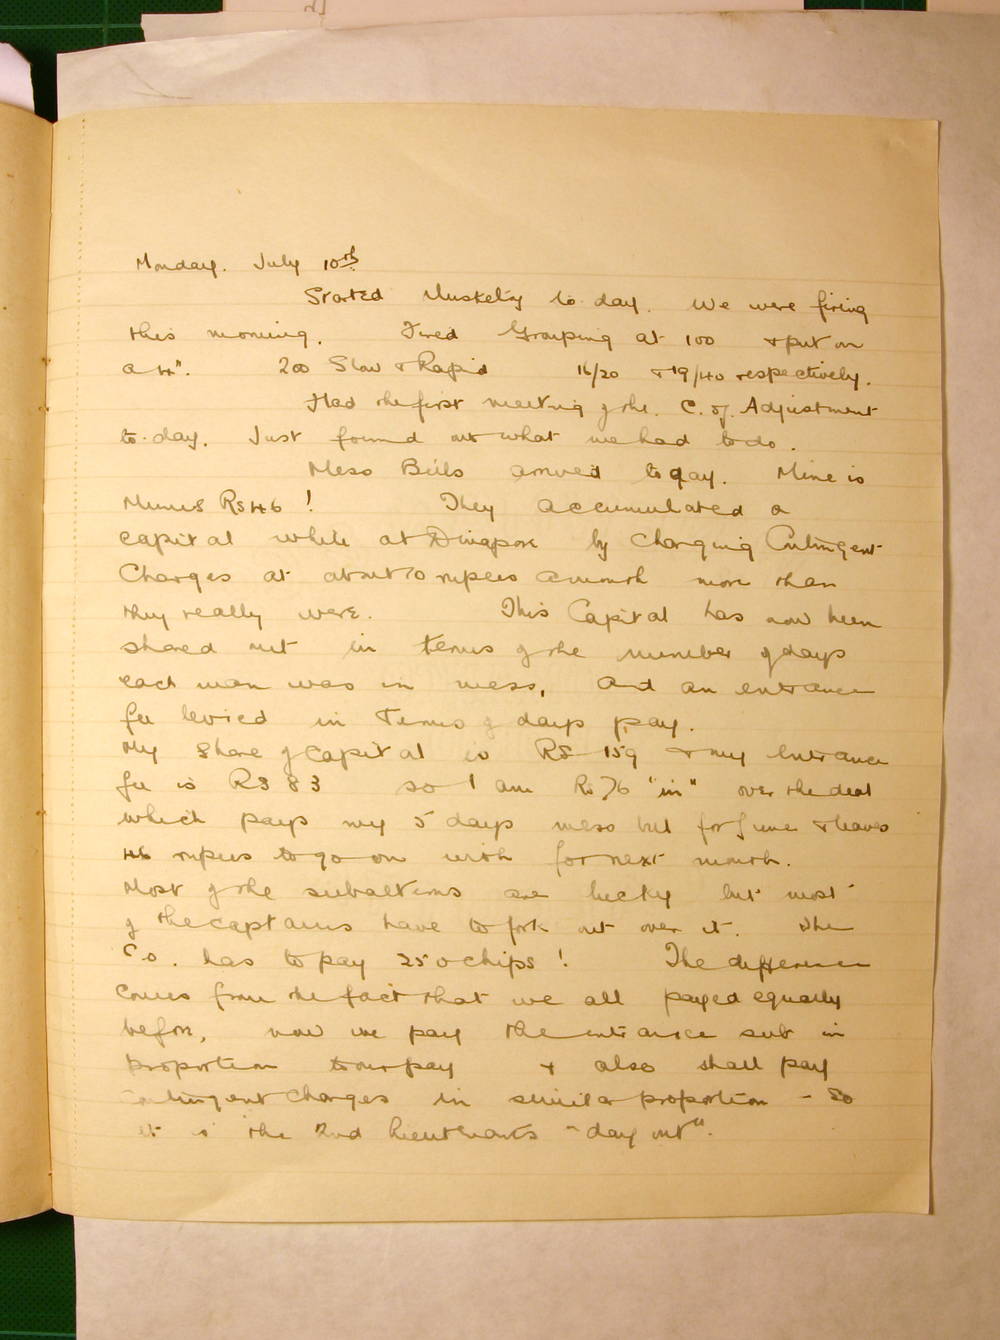 Monday. July 10th
Started Musketry to day. We were firing
this morning. Fired Grouping at 100 & put on
a 4". 200 Slow & Rapid 16/20 & 19/40 respectively.
Had the first meeting of the C. of Adjustment
to-day. Just found out what we had to do.
Mess Bills arrived today. Mine is
Minus Rs 46! They accumulated a
capital while at Dinapore by charging Contingent
Charges at about 10 rupees a month more than
they really were. This Capital has now been
shared out in terms of the number of days
each man was in mess, and an entrance
fee levied in terms of days pay.
My share of capital is Rs 159 & my entrance
fee is Rs 83 so I am Rs 76 "in" over the deal
which pays my 5 days mess bill for June & leaves
46 rupees to go on with for next month.
Most of the subalterns are lucky but most
of the captains have to fork out over it. The
C.O. has to pay 250 chips! The difference
comes from the fact that we all payed equally
before, now we pay the entrance sub in
proportion to our pay & also shall pay
contingent charges in similar proportion - So
it is the 2nd Lieutenants "day out".